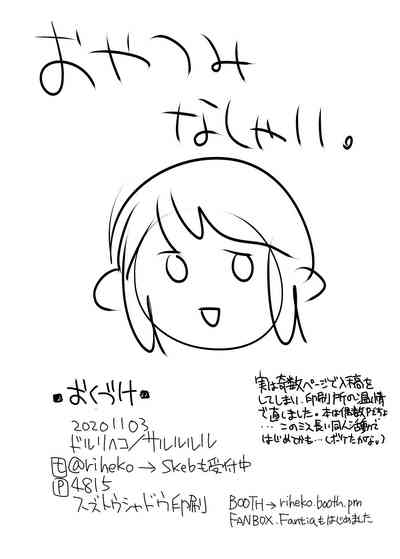 おやつみ
なしゃいい。
・おくづけ・
20201103
ドルリヘコ/サルルルルル
@riheko→Skebも受付中
P 4815
スズトウシャドウ印刷
実は奇数ページで入稿を
してしまい、印刷所の温情
で直しました。本は偶数Pだろ
…このミス長い同人活動で
はじめてかも…(ボケたかな?)
BOOTH→riheko.booth.pm
FANBOX、Fantiaもはじめました